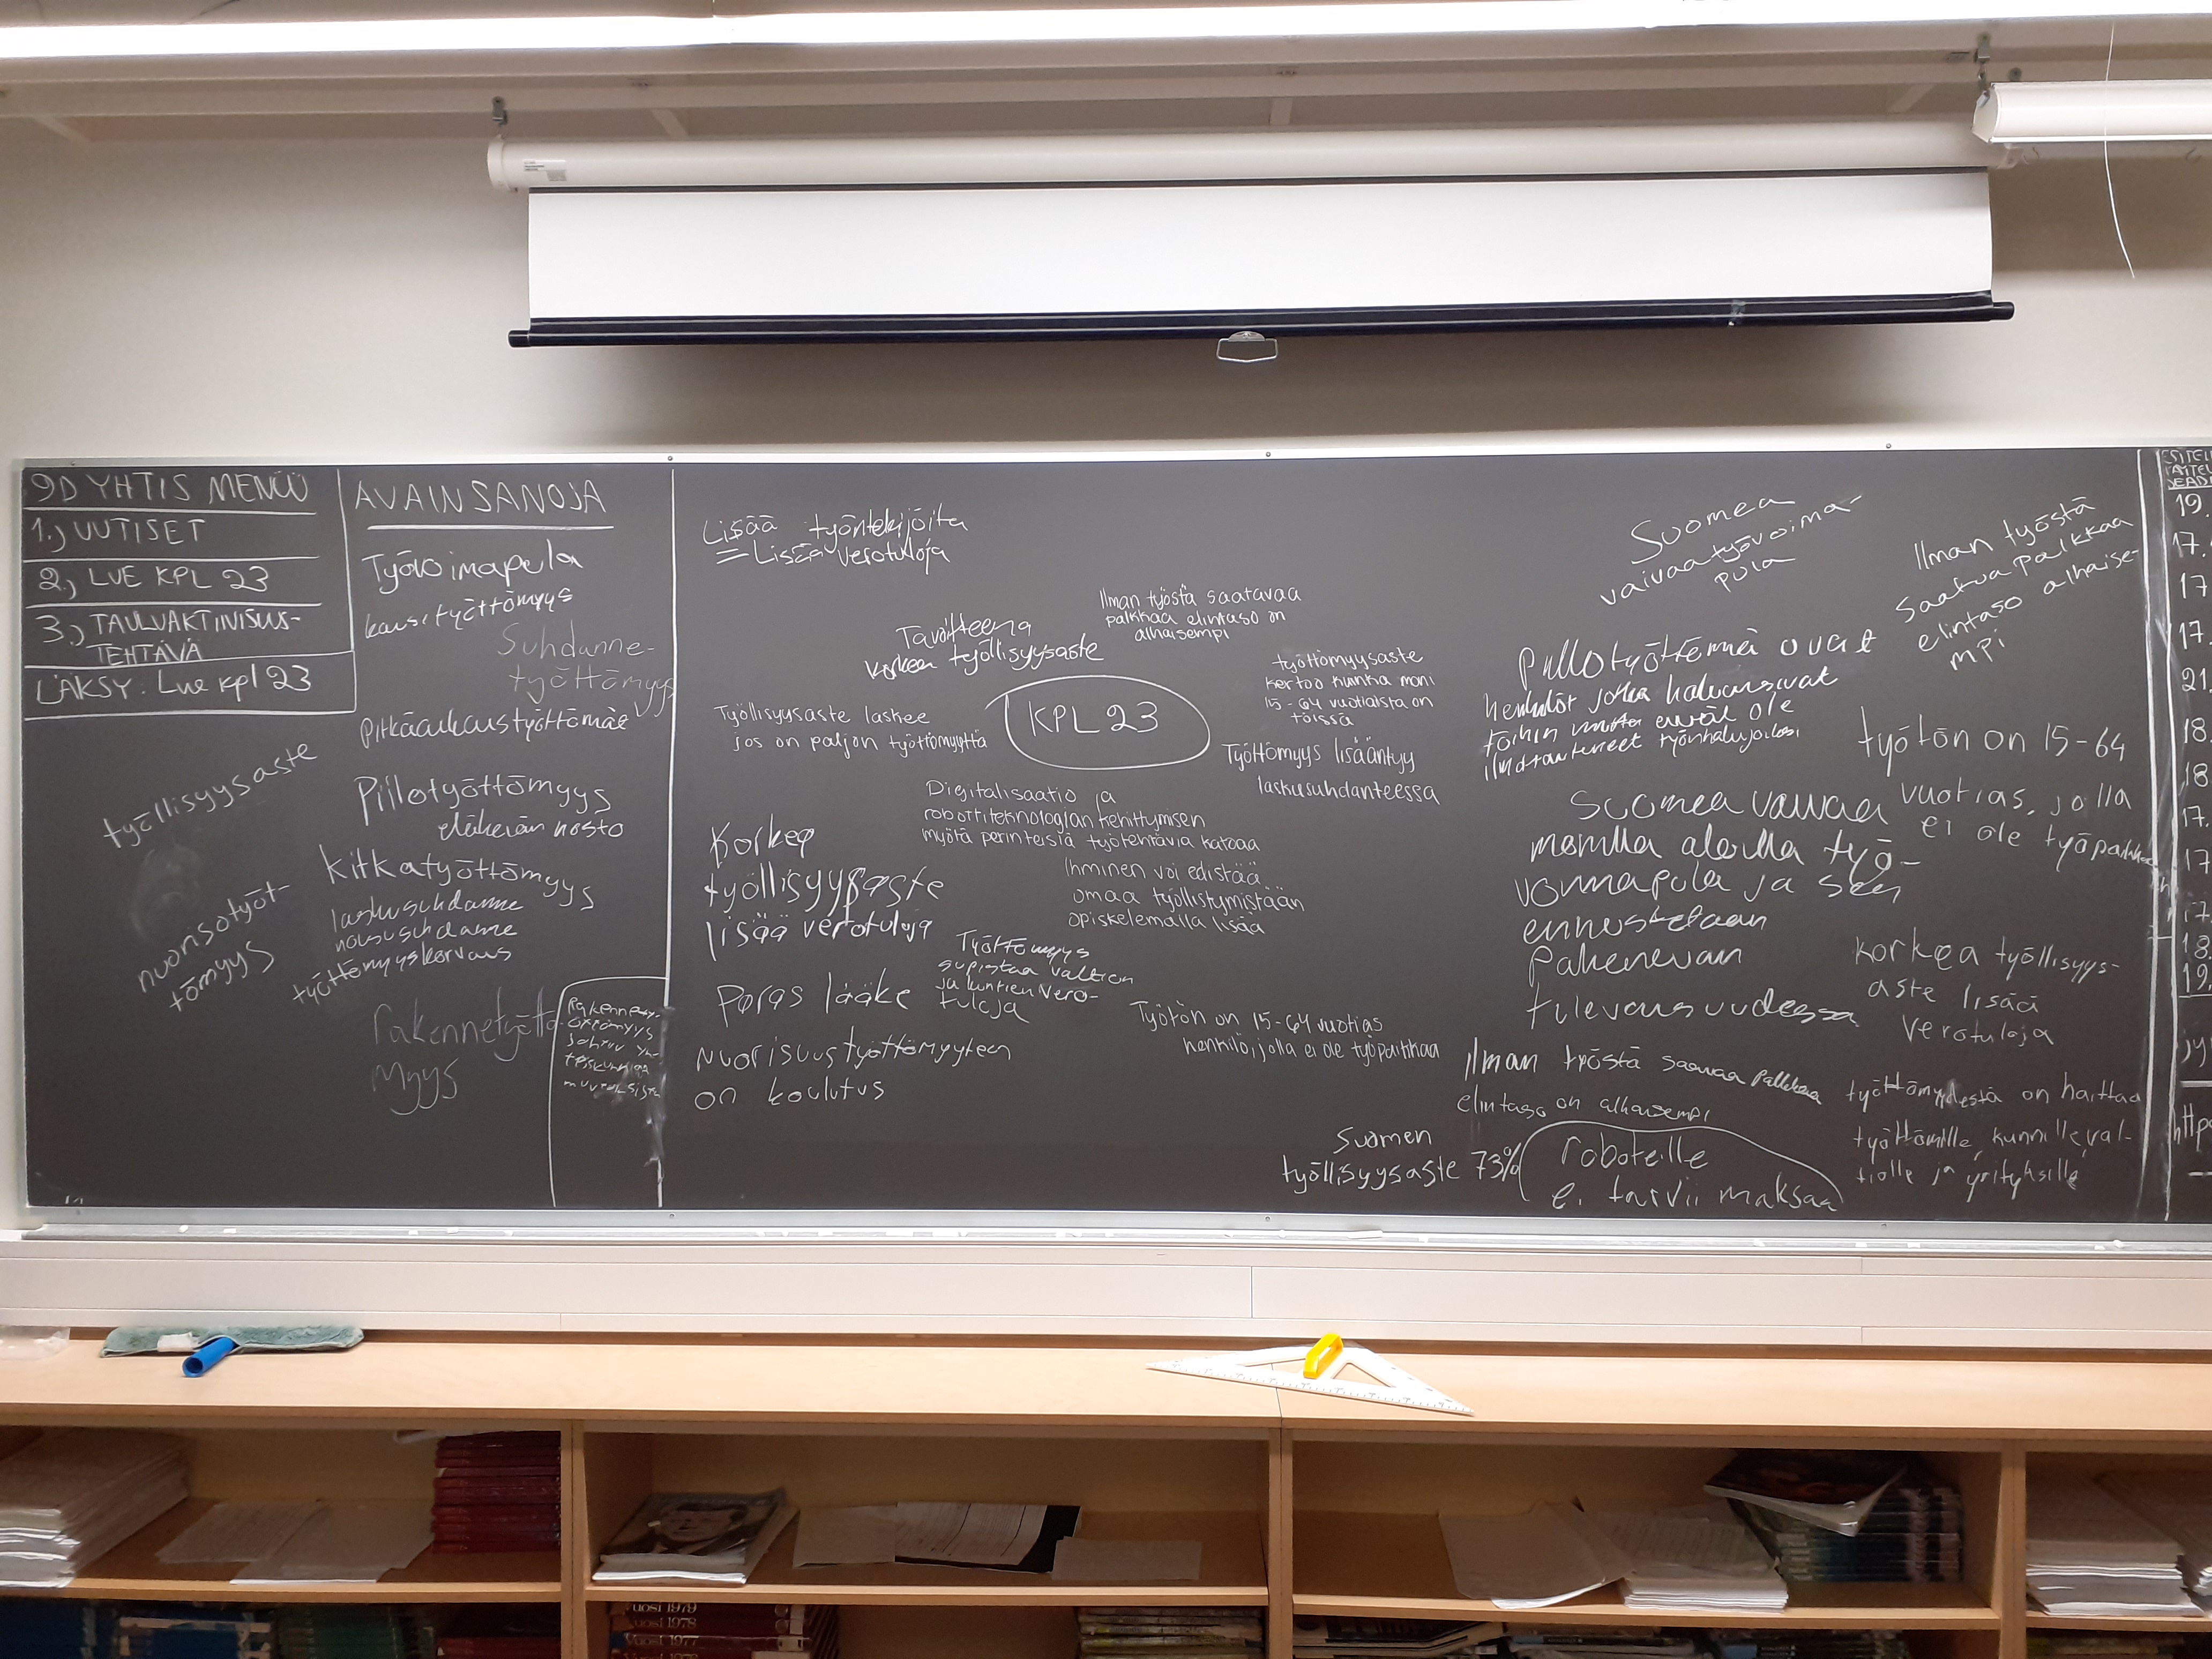 9D YHTIS MENÜÜ
1.) UUTISET
2.) LUE KPL 23
3.) TAULUAKTIVISUUS-
TEHTÄVÄ
LÄKSY: Lue kpl 23
työllisyysaste
nuorisotyöt-
tömyys
AVAINSANOJA
Työvoimapula
kausityöttömyys
Suhdanne-
työttömyys
Pitkäaikaistyöttömät
Piilotyöttömyys
eläkeiän nosto
kitkatyöttömyys
laskusuhdanne
noususuhdanne
työttömyyskorvaus
rakennetyöttö-
myys
Lisää työntekijöitä
= Lisää verotuloja
Tavoitteena
korkea työllisyysaste
Ilman työstä saatavaa
palkkaa elintaso on
alhaisempi
työttömyysaste
kertoo kuinka moni
15-64 vuotiaista on
töissä
Työllisyysaste laskee
jos on paljon työttömyyttä
KPL 23
Työttömyys lisääntyy
laskusuhdanteessa
Digitalisaatio ja
robottiteknologian kehittymisen
myötä perinteisiä työtehtäviä katoaa
Korkea
työllisyysaste
lisää verotuloja
Ihminen voi edistää
omaa työllistymistään
opiskelemalla lisää
Työttömyys
supistaa valtion
ja kuntien vero-
tuloja
Paras lääke
nuorisuustyöttömyyteen
on koulutus
Työtön on 15-64 vuotias
henkilö, jolla ei ole työpaikkaa
Suomen
työllisyysaste 73%
Suomea
vaivaa työvoima-
pula
Piilotyöttömiä ovat
henkilöt jotka haluaisivat
töihin mutta eivät ole
ilmoittautuneet työnhakijoiksi
Suomea vaivaa
monilla aloilla työ-
voimapula ja sen
ennustetaan
pahenevan
tulevaisuudessa
Ilman työstä saavaa palkkaa
elintaso on alhaisempi
roboteille
ei tarvii maksaa
Ilman työstä
saatuva palkkaa
elintaso alhaise-
mpi
työtön on 15-64
vuotias, jolla
ei ole työpaikkaa
korkea työllisyys-
aste lisää
verotuloja
työttömyydestä on haittaa
työttömille, kunnille, val-
tiolle ja yrityksille
19.
17.
17
17.
21.
18.
18
17.
17
17.
18.
19.
Vuosi 1979
Vuosi 1978
Vuosi 1977